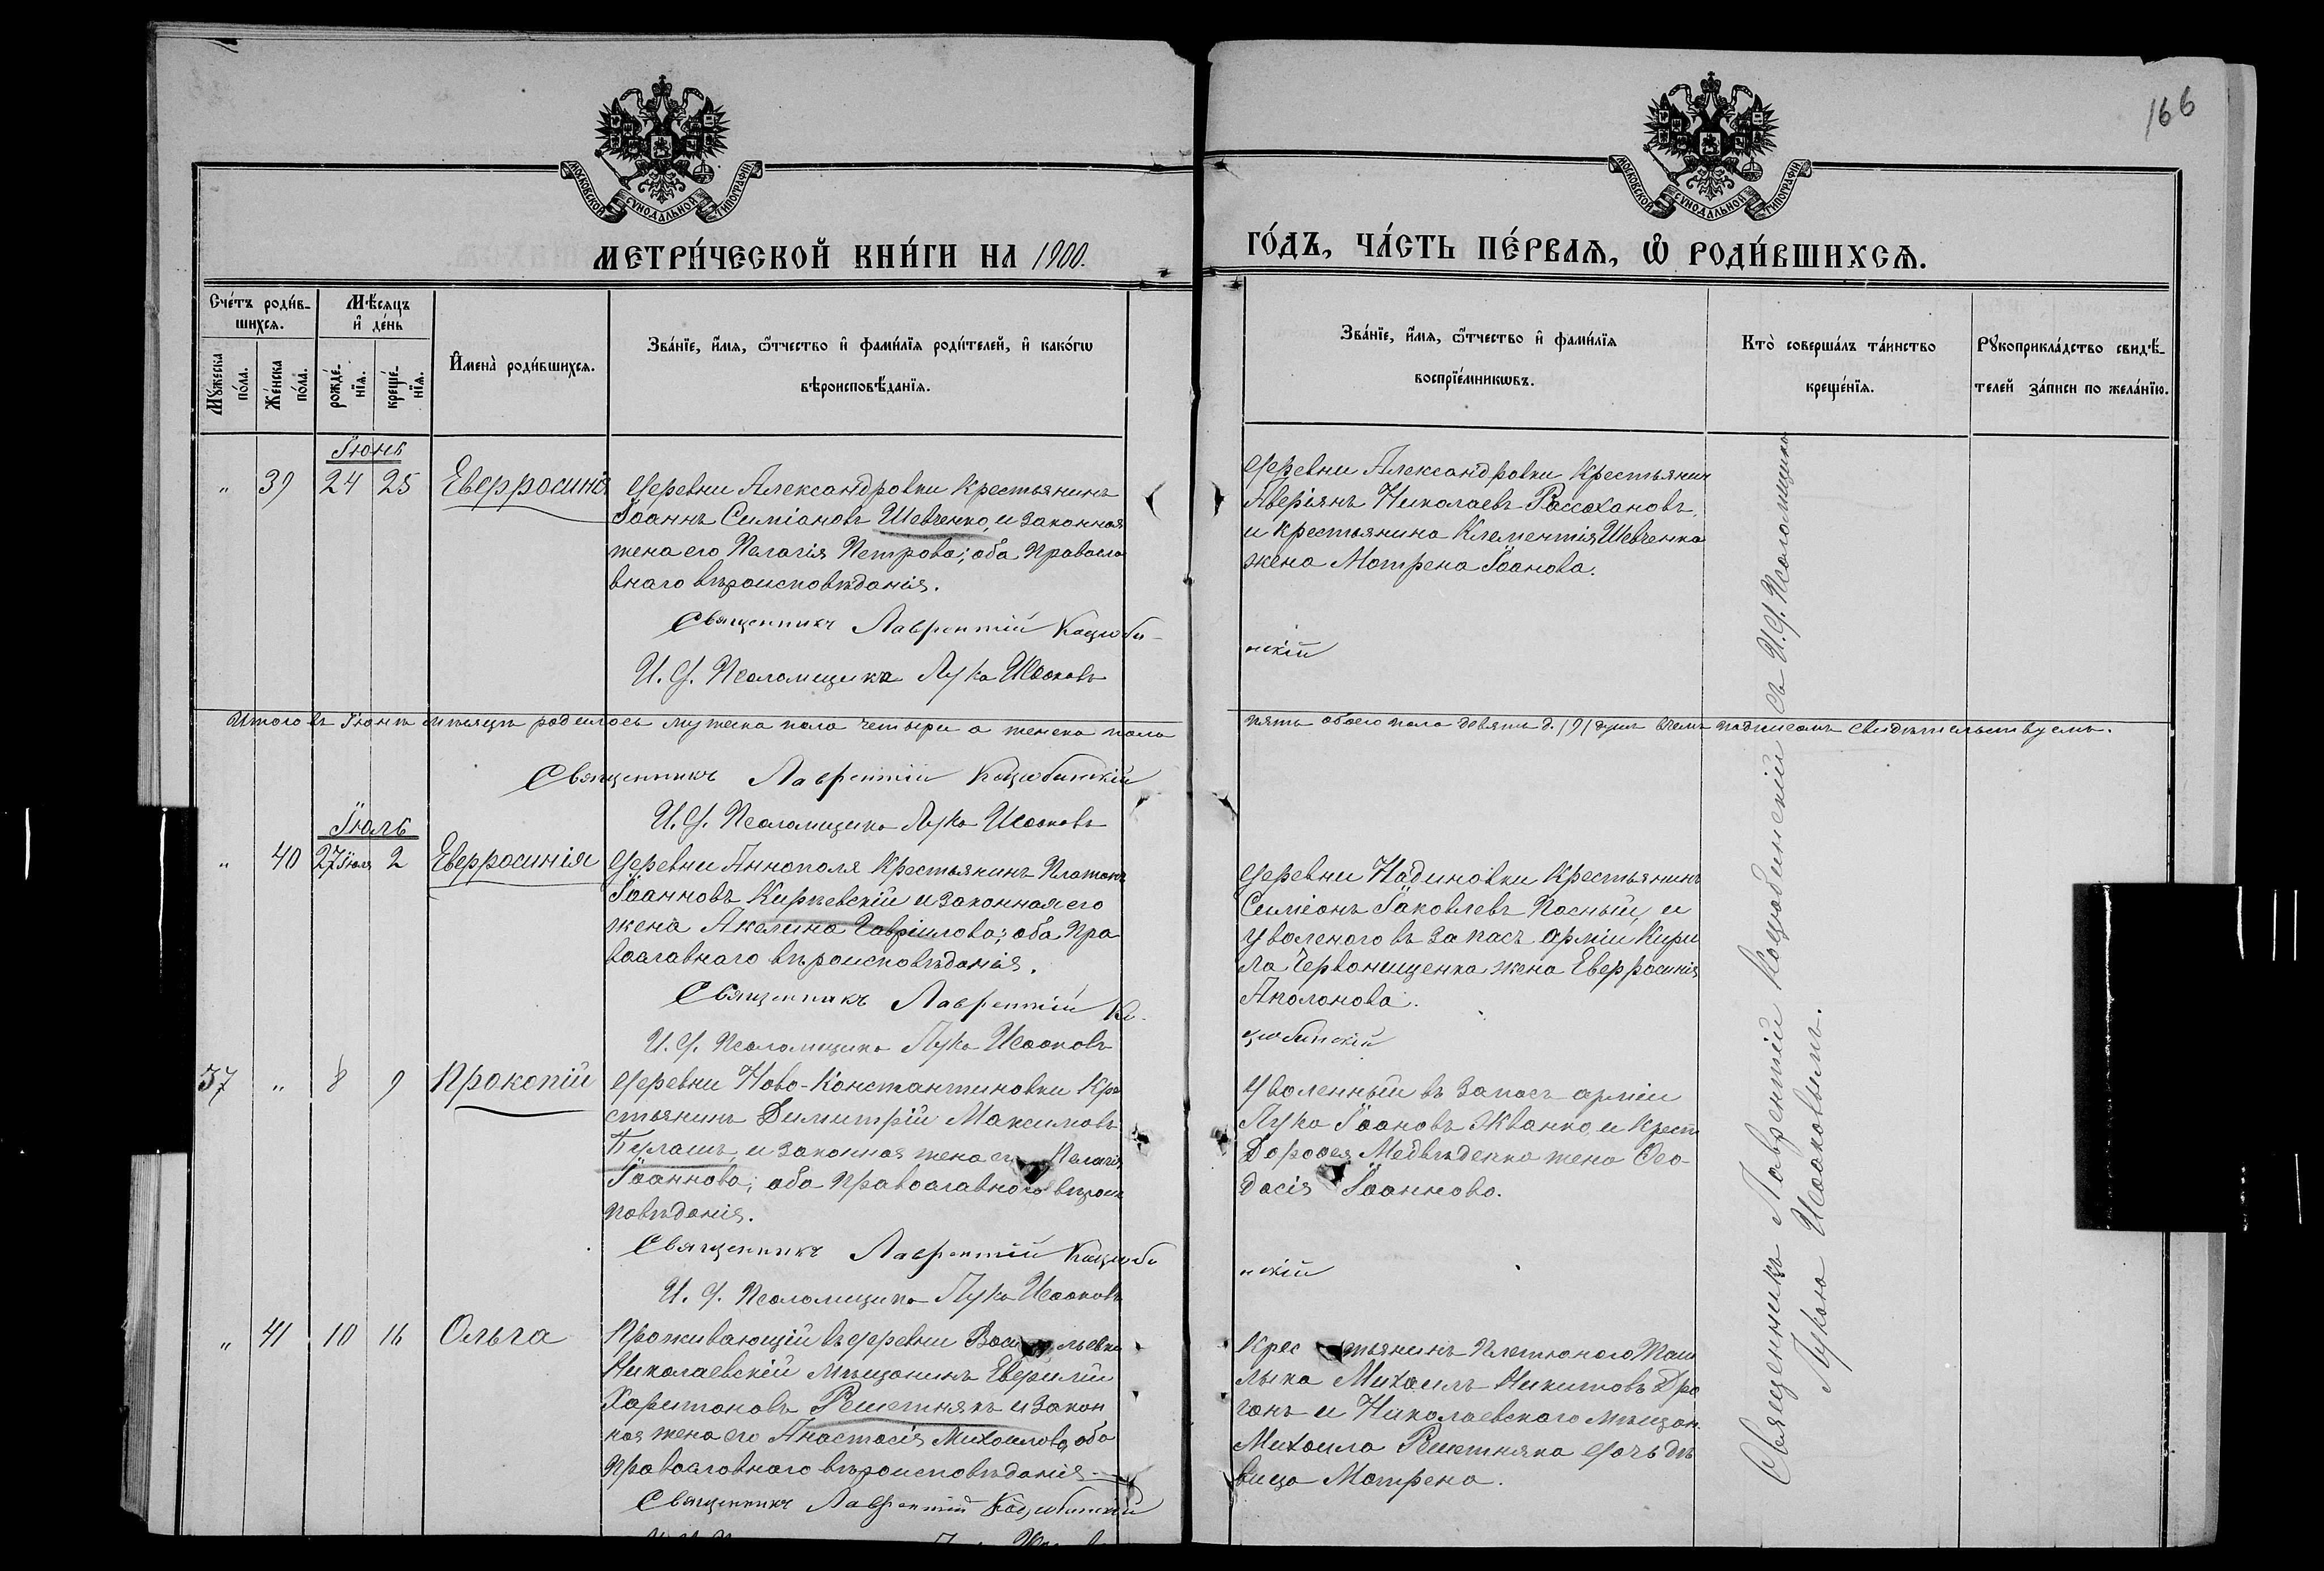 166
МОСКОВСКОЙ СѴНОДАЛЬНОЙ ТИПОГРАФІИ
МОСКОВСКОЙ СѴНОДАЛЬНОЙ ТИПОГРАФІИ
МЕТРИ́ЧЕСКОЙ КНИ́ГИ НА 1900.
ГО́ДЪ, ЧА́СТЬ ПЕ́РВАѦ, Ѽ РОДИ́ВШИХСѦ.
Сче́тъ роди́в-
шихсѧ.
Мꙋжеска
по́ла.
Же́нска
по́ла.
Мѣ́сѧцъ
и҆ де́нь
рожде́-
нїѧ.
креще́-
нїѧ.
И҆мена̀ роди́вшихсѧ.
Зва́нїе, и҆́мѧ, ѻ҆́тчество и҆ фами́лїѧ роди́телей, и҆ како́гѡ
вѣроисповѣ́данїѧ.
Зва́нїе, и҆́мѧ, ѻ҆́тчество и҆ фами́лїѧ
воспрїе́мникѡвъ.
Кто̀ соверша́лъ та́инство
креще́нїѧ.
Рꙋкоприкла́дство свидѣ́-
телей за́писи по жела́нїю.
Іюнь
" 39 24 25 Евфросинія
Деревни Александровки крестьянинъ
Іоаннъ Симіоновъ Шевченко, и законная
жена его Пелагія Петрова; оба правосла
внаго вѣроисповѣданія.
Священникъ Лаврентій Коцюби-
И. д. Псаломщика Лука Исааковъ
Деревни Александровки крестьянин
Аверіянъ Николаевъ Рассохановъ,
и крестьянина Климентія Шевченка
жена Мотрена Іоанова.
нскій
Итого въ Іюнѣ мѣсяцѣ родилось мужеска пола четыри а женска пола
пять обоего пола девять д. (9) душъ въ чемъ подписомъ свидѣтельствуемъ.
Священникъ Лаврентій Коцюбинскій
И. д. Псаломщика Лука Исааковъ
Іюль
" 40 27 Іюня 2 Евфросинія
Деревни Аннополя крестьянинъ Платонъ
Іоанновъ Кирневскій и законная его
жена Акелина Гавріилова; оба пра
вославнаго вѣроисповѣданія.
Священникъ Лаврентій Ко-
И. д. Псаломщика Лука Исааковъ
Деревни Надиновки крестьянинъ
Симіонъ Іаковлевъ Пасный, и
уволеного въ запасъ арміи Кири
ла Червонищенка жена Евфросинія
Аполонова.
цюбинскій
37 " 8 9 Прокопій
Деревни Ново-Константиновки кре
стьянинъ Димитрій Максимовъ
Булашъ, и законная жена его Пелагія
Іоаннова; оба православного вѣроис
повѣданія.
Священникъ Лаврентій Коцюби
И. д. Псаломщика Лука Исааковъ
Уволенный въ запасъ арміи
Лука Іоановъ Жванко, и крест
Дорофея Медвѣденка жена Ѳео-
досія Іоаннова.
нскій
" 41 10 16 Ольга
Проживающій въ деревни Васильевки
Николаевскій мѣщанинъ Евфимій
Харитоновъ Решетнякъ и закон
ная жена его Анастасія Михаилова, оба
православнаго вѣроисповѣданія.
Священникъ Лаврентій Коцюбинскій
Крестьянинъ Плетюного Таш
лыка Михаилъ Никитовъ Дра
ганъ и Николаевского мѣщан.
Михаила Решетняка дочь дѣ
вица Мотрена.
Священникъ Лаврентій Коцюбинскій съ И. д. Псаломщика
Лукою Исааковымъ.